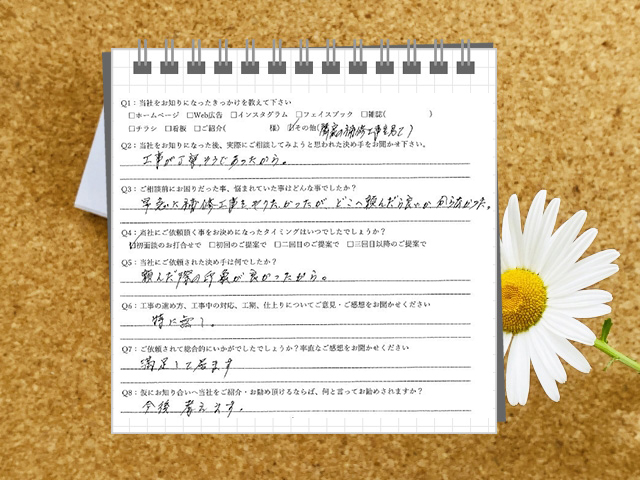 Q1：当社をお知りになったきっかけを教えて下さい
□ホームページ □Web広告 □インスタグラム □フェイスブック □雑誌( )
□チラシ □看板 □ご紹介( 様) ☑その他(隣家の補修工事を見て)
Q2：当社をお知りになった後、実際にご相談してみようと思われた決め手をお聞かせ下さい。
工事が丁寧そうであったから。
Q3：ご相談前にお困りだった事、悩まれていた事はどんな事でしたか？
早急に補修工事をやりたかったが どこへ頼んだら良いか 分らなかった。
Q4：当社にご依頼頂く事をお決めになったタイミングはいつでしたでしょうか？
☑初面談のお打合せで □初回のご提案で □二回目のご提案で □三回目以降のご提案で
Q5：当社にご依頼された決め手は何でしたか？
頼んだ際の印象が良かったから。
Q6：工事の進め方、工事中の対応、工期、仕上りについてご意見・ご感想をお聞かせください
特に無し。
Q7：ご依頼されて総合的にいかがでしたでしょうか？率直なご感想をお聞かせください
満足して居ます
Q8：仮にお知り合いへ当社をご紹介・お勧め頂けるならば、何と言ってお勧めされますか？
今後 考えます。